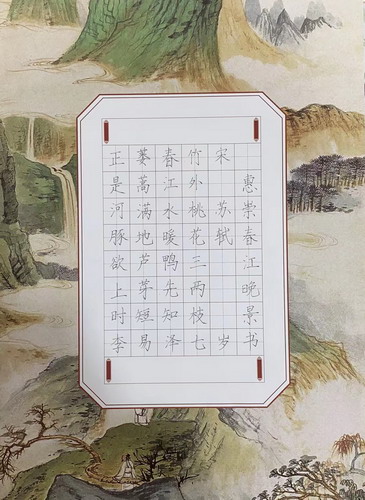 惠崇春江晚景
宋 苏轼
竹外桃花三两枝
春江水暖鸭先知
蒌蒿满地芦芽短
正是河豚欲上时
李易泽七岁书